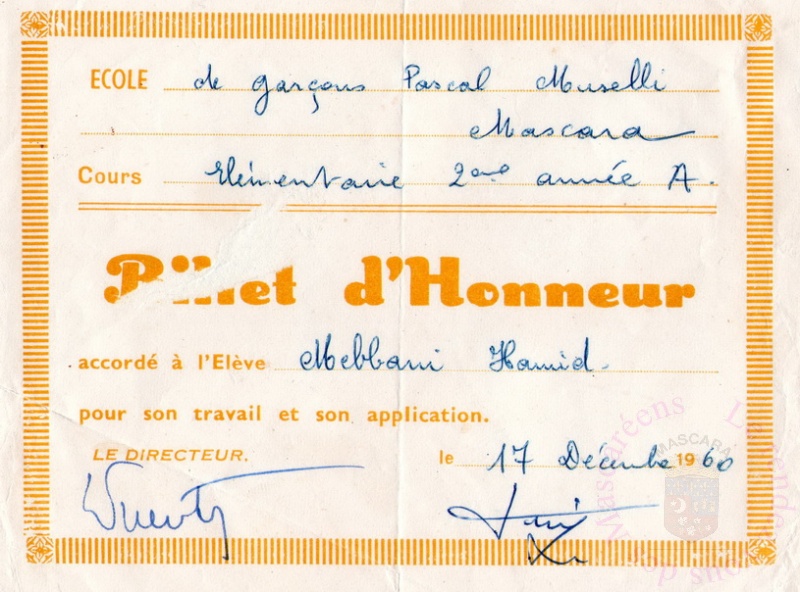 ECOLE de garçons Pascal Muselli
Mascara
Cours Elémentaire 2ème année A.
Billet d'Honneur
accordé à l'Elève Mebbani Hamid.
pour son travail et son application.
LE DIRECTEUR. le 17 Décembre 1960
Mascaréens
MASCARA
top site